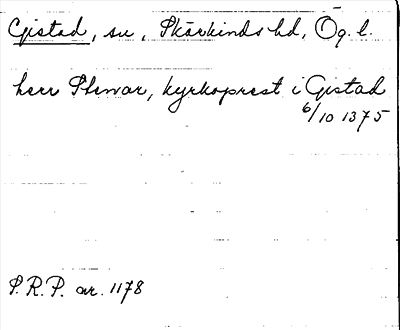 Gistad, sn, Skärkinds hd, Ög. l.
herr Stenar, kyrkoprest i Gistad
6/10 1375
S.R.P. nr. 1178